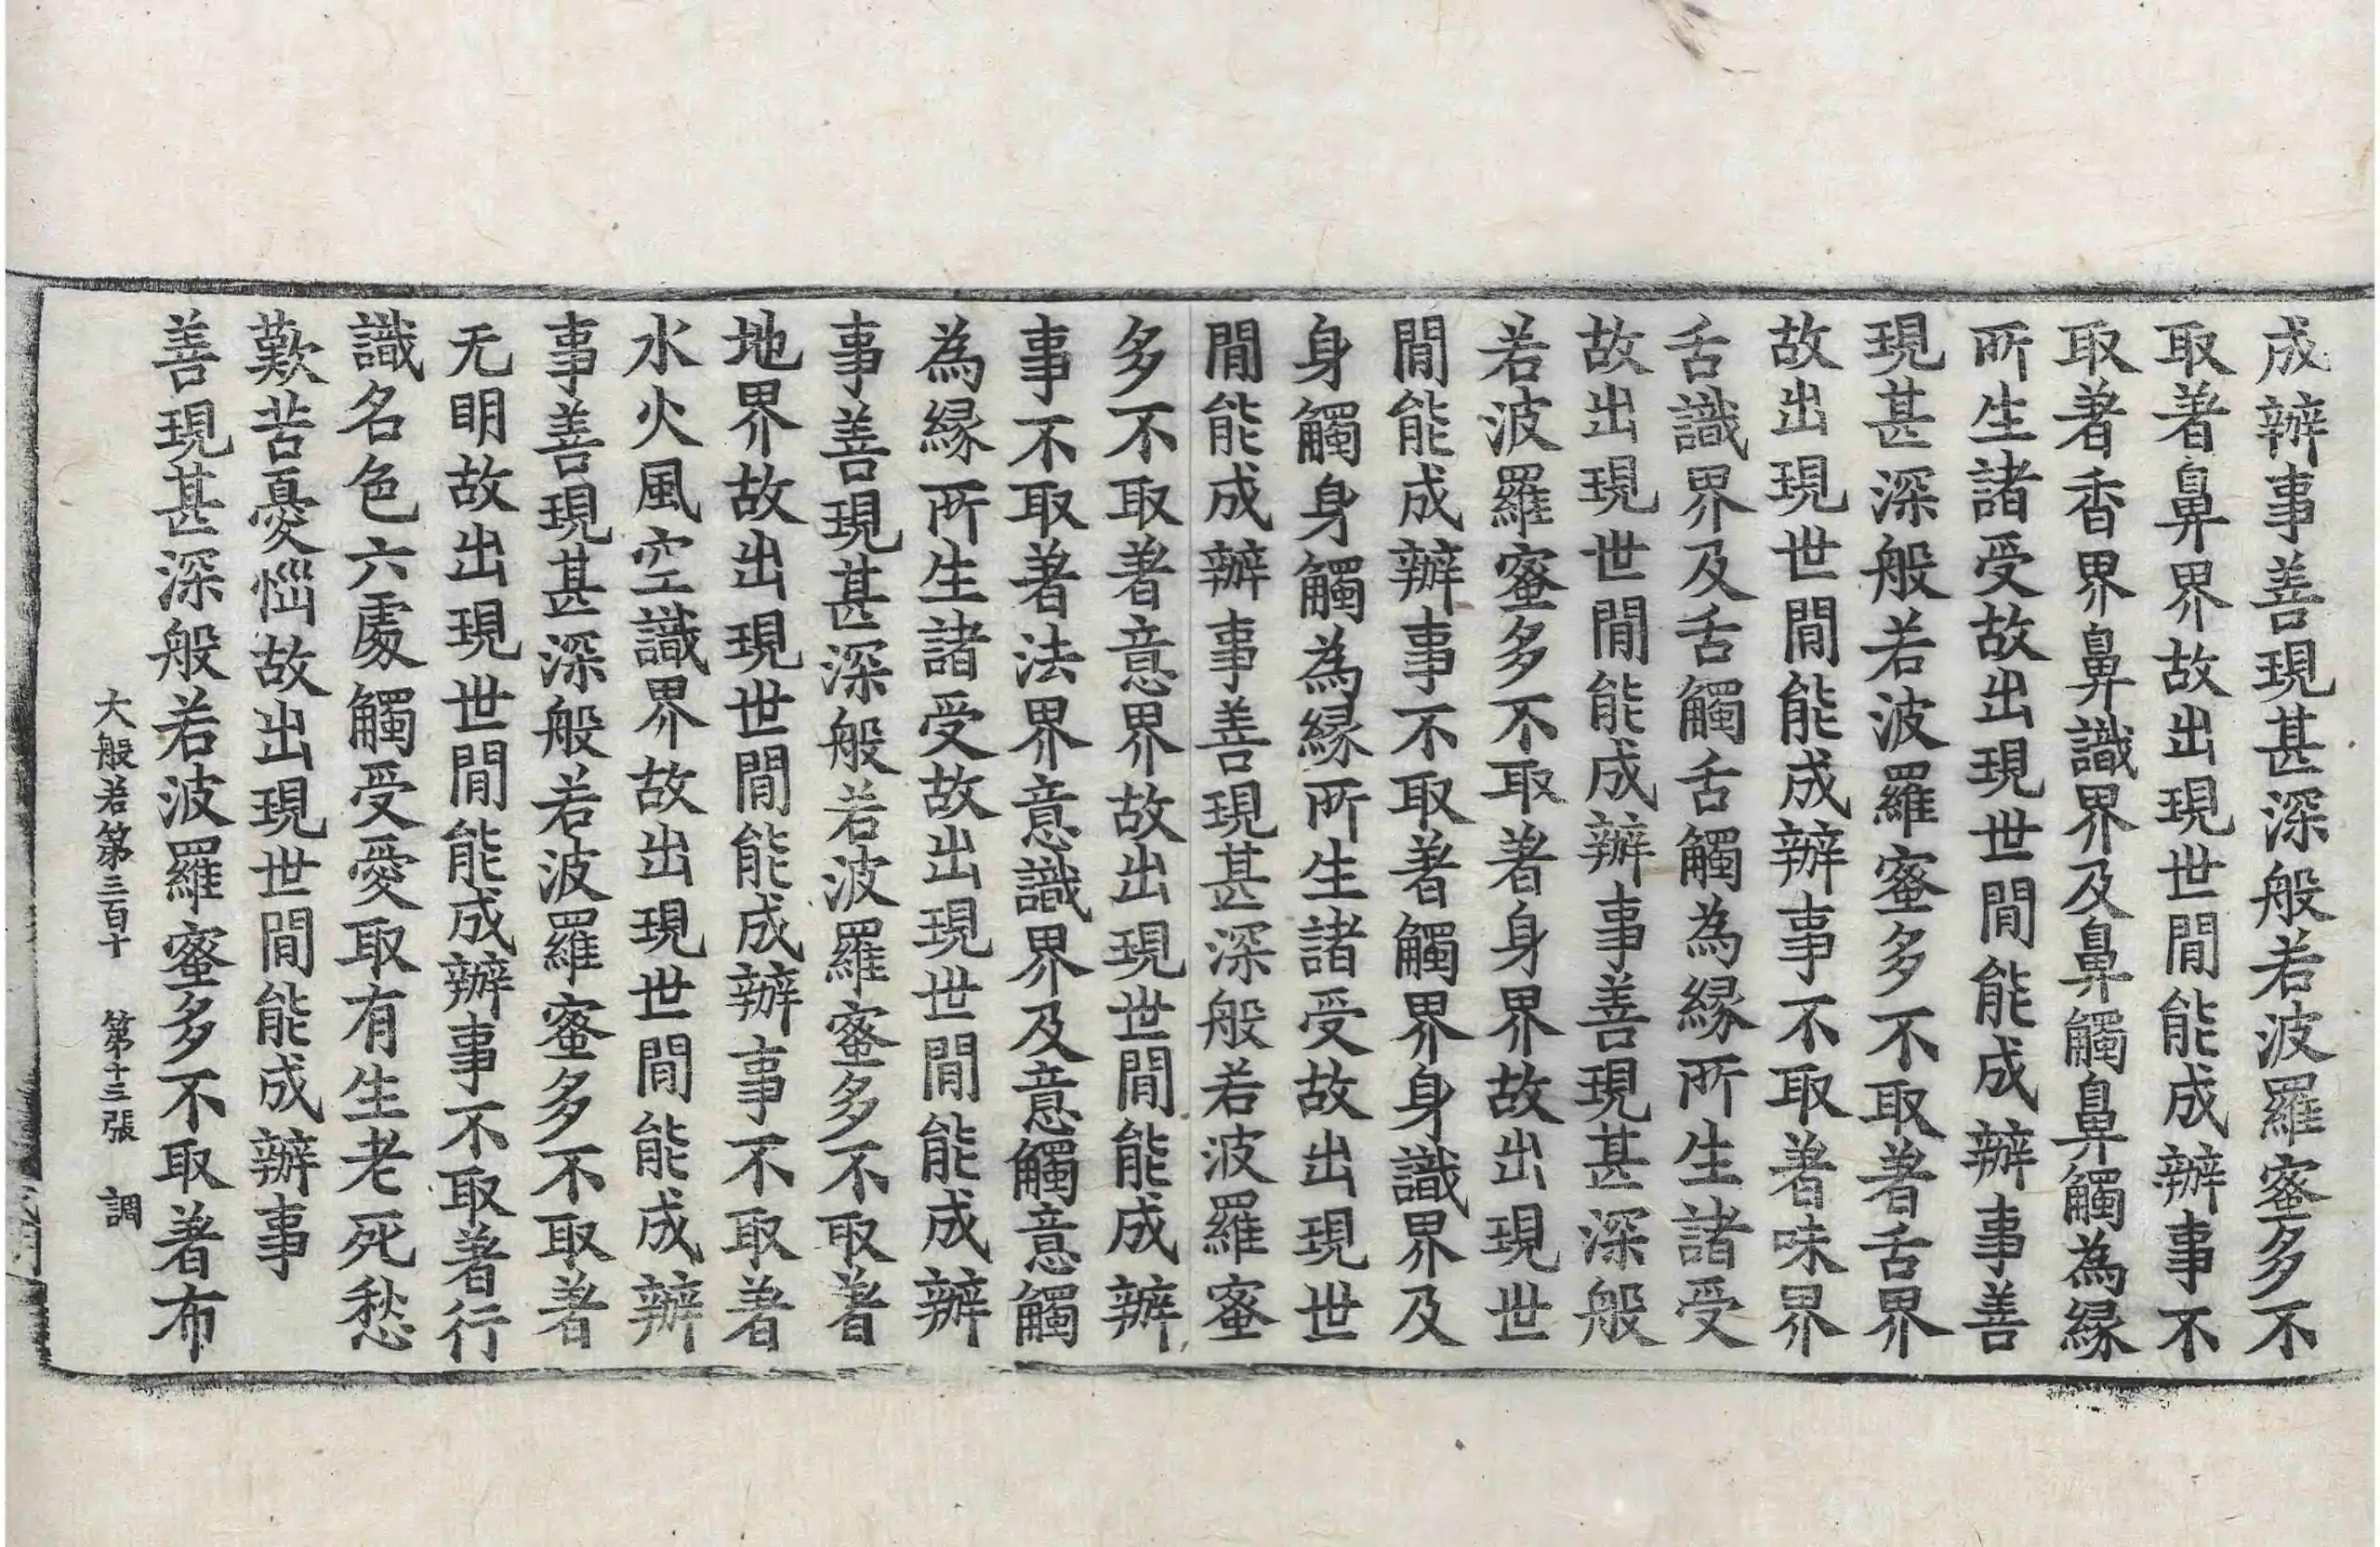 成辦事善現甚深般若波羅蜜多不
取著鼻界故出現世閒能成辦事不
取著香界鼻識界及鼻觸鼻觸為緣
所生諸受故出現世閒能成辦事善
現甚深般若波羅蜜多不取著舌界
故出現世閒能成辦事不取著味界
舌識界及舌觸舌觸為緣所生諸受
故出現世閒能成辦事善現甚深般
若波羅蜜多不取著身界故出現世
閒能成辦事不取著觸界身識界及
身觸身觸為緣所生諸受故出現世
閒能成辦事善現甚深般若波羅蜜
多不取著意界故出現世閒能成辦
事不取著法界意識界及意觸意觸
為緣所生諸受故出現世閒能成辦
事善現甚深般若波羅蜜多不取著
地界故出現世閒能成辦事不取著
水火風空識界故出現世閒能成辦
事善現甚深般若波羅蜜多不取著
无明故出現世閒能成辦事不取著行
識名色六處觸受愛取有生老死愁
歎苦憂惱故出現世閒能成辦事
善現甚深般若波羅蜜多不取著布
大般若第三百十 第十三張 調